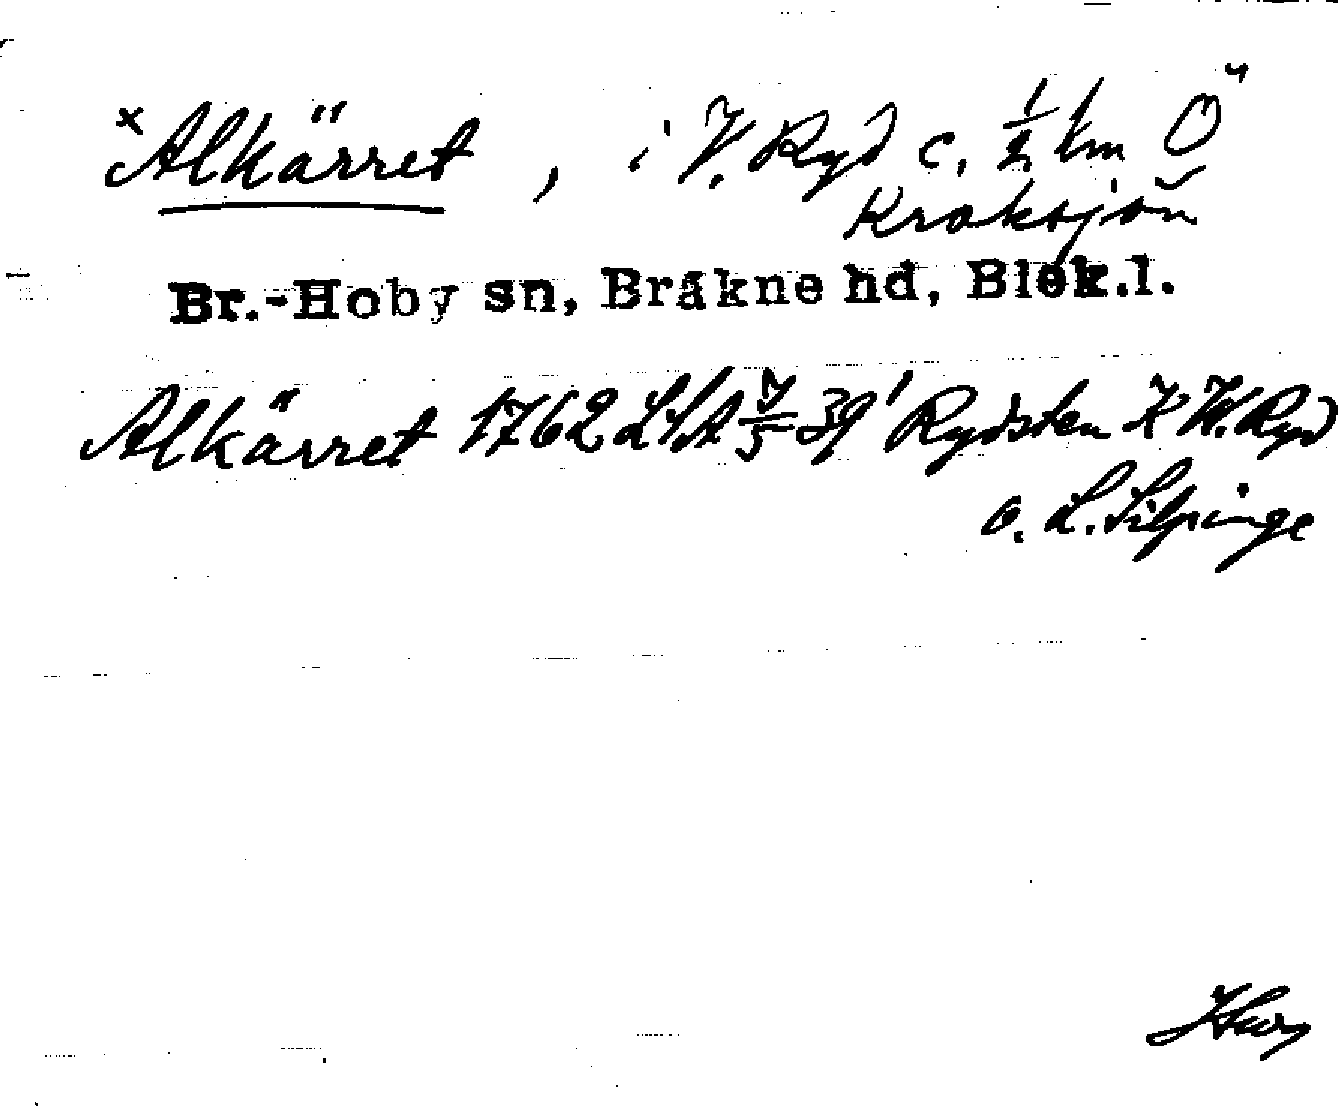 ×Alkärret, i V. Ryd c. ½ km Ö
Kroksjön
Br.-Hoby sn, Bräkne hd, Blek.l.
Alkärret 1762 LSA 39 Rydsten V. Ryd
o. L. Silpinge